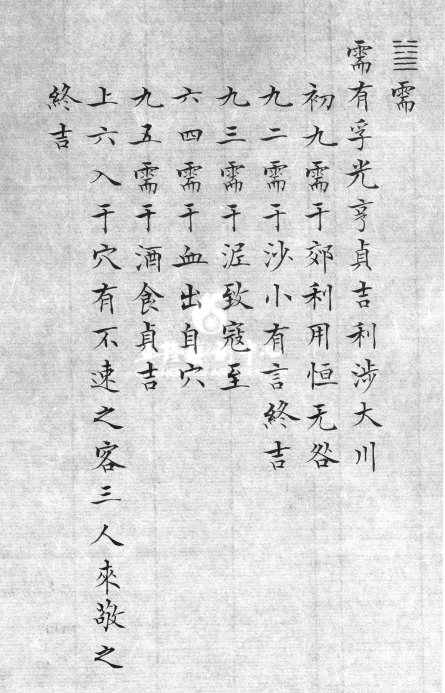 ䷄需
需有孚光亨貞吉利涉大川
初九需于郊利用恒无咎
九二需于沙小有言終吉
九三需于泥致寇至
六四需于血出自穴
九五需于酒食貞吉
上六入于穴有不速之客三人來敬之
終吉